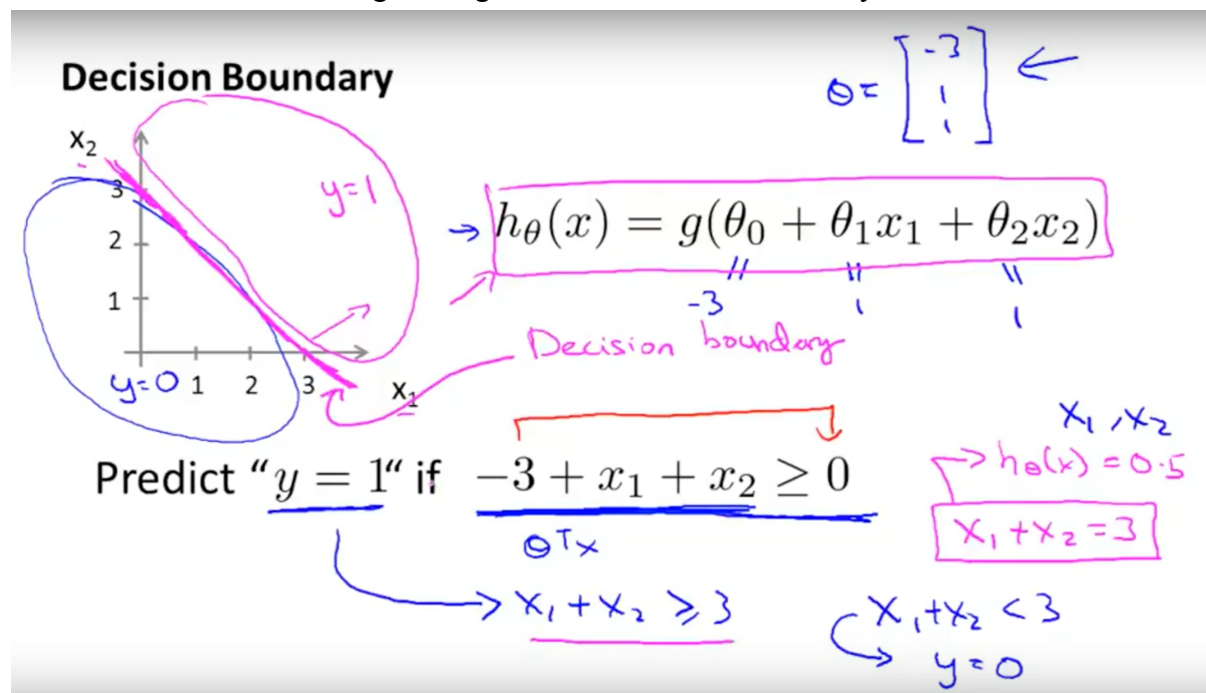 Decision Boundary
θ = [-3 1 1]
x₂
3
2
1
y=1
y=0 1 2 3 x₁
hθ(x) = g(θ₀ + θ₁x₁ + θ₂x₂)
-3 1 1
Decision boundary
Predict “y = 1“ if −3 + x₁ + x₂ ≥ 0
θᵀx
x₁ + x₂ ≥ 3
x₁, x₂
hθ(x) = 0.5
x₁ + x₂ = 3
x₁ + x₂ < 3
y = 0